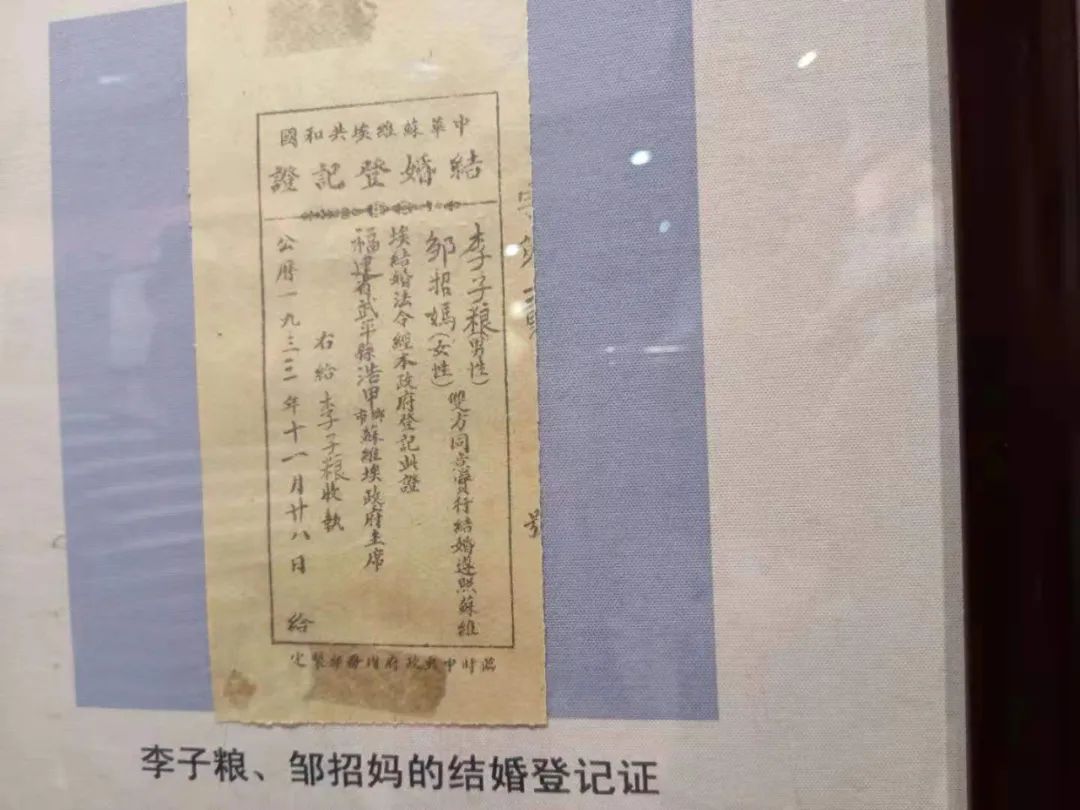 中華蘇維埃共和國
結婚登記證
李子粮(男性)
邹招媽(女性)
雙方同意實行結婚遵照蘇維
埃結婚法令經本政府登記此證
福建省武平縣浩甲鄉市蘇維埃政府主席
右給李子粮收執
公曆一九三三年十一月廿八日 給
臨时中央政府内務部製定
李子粮、邹招妈的结婚登记证